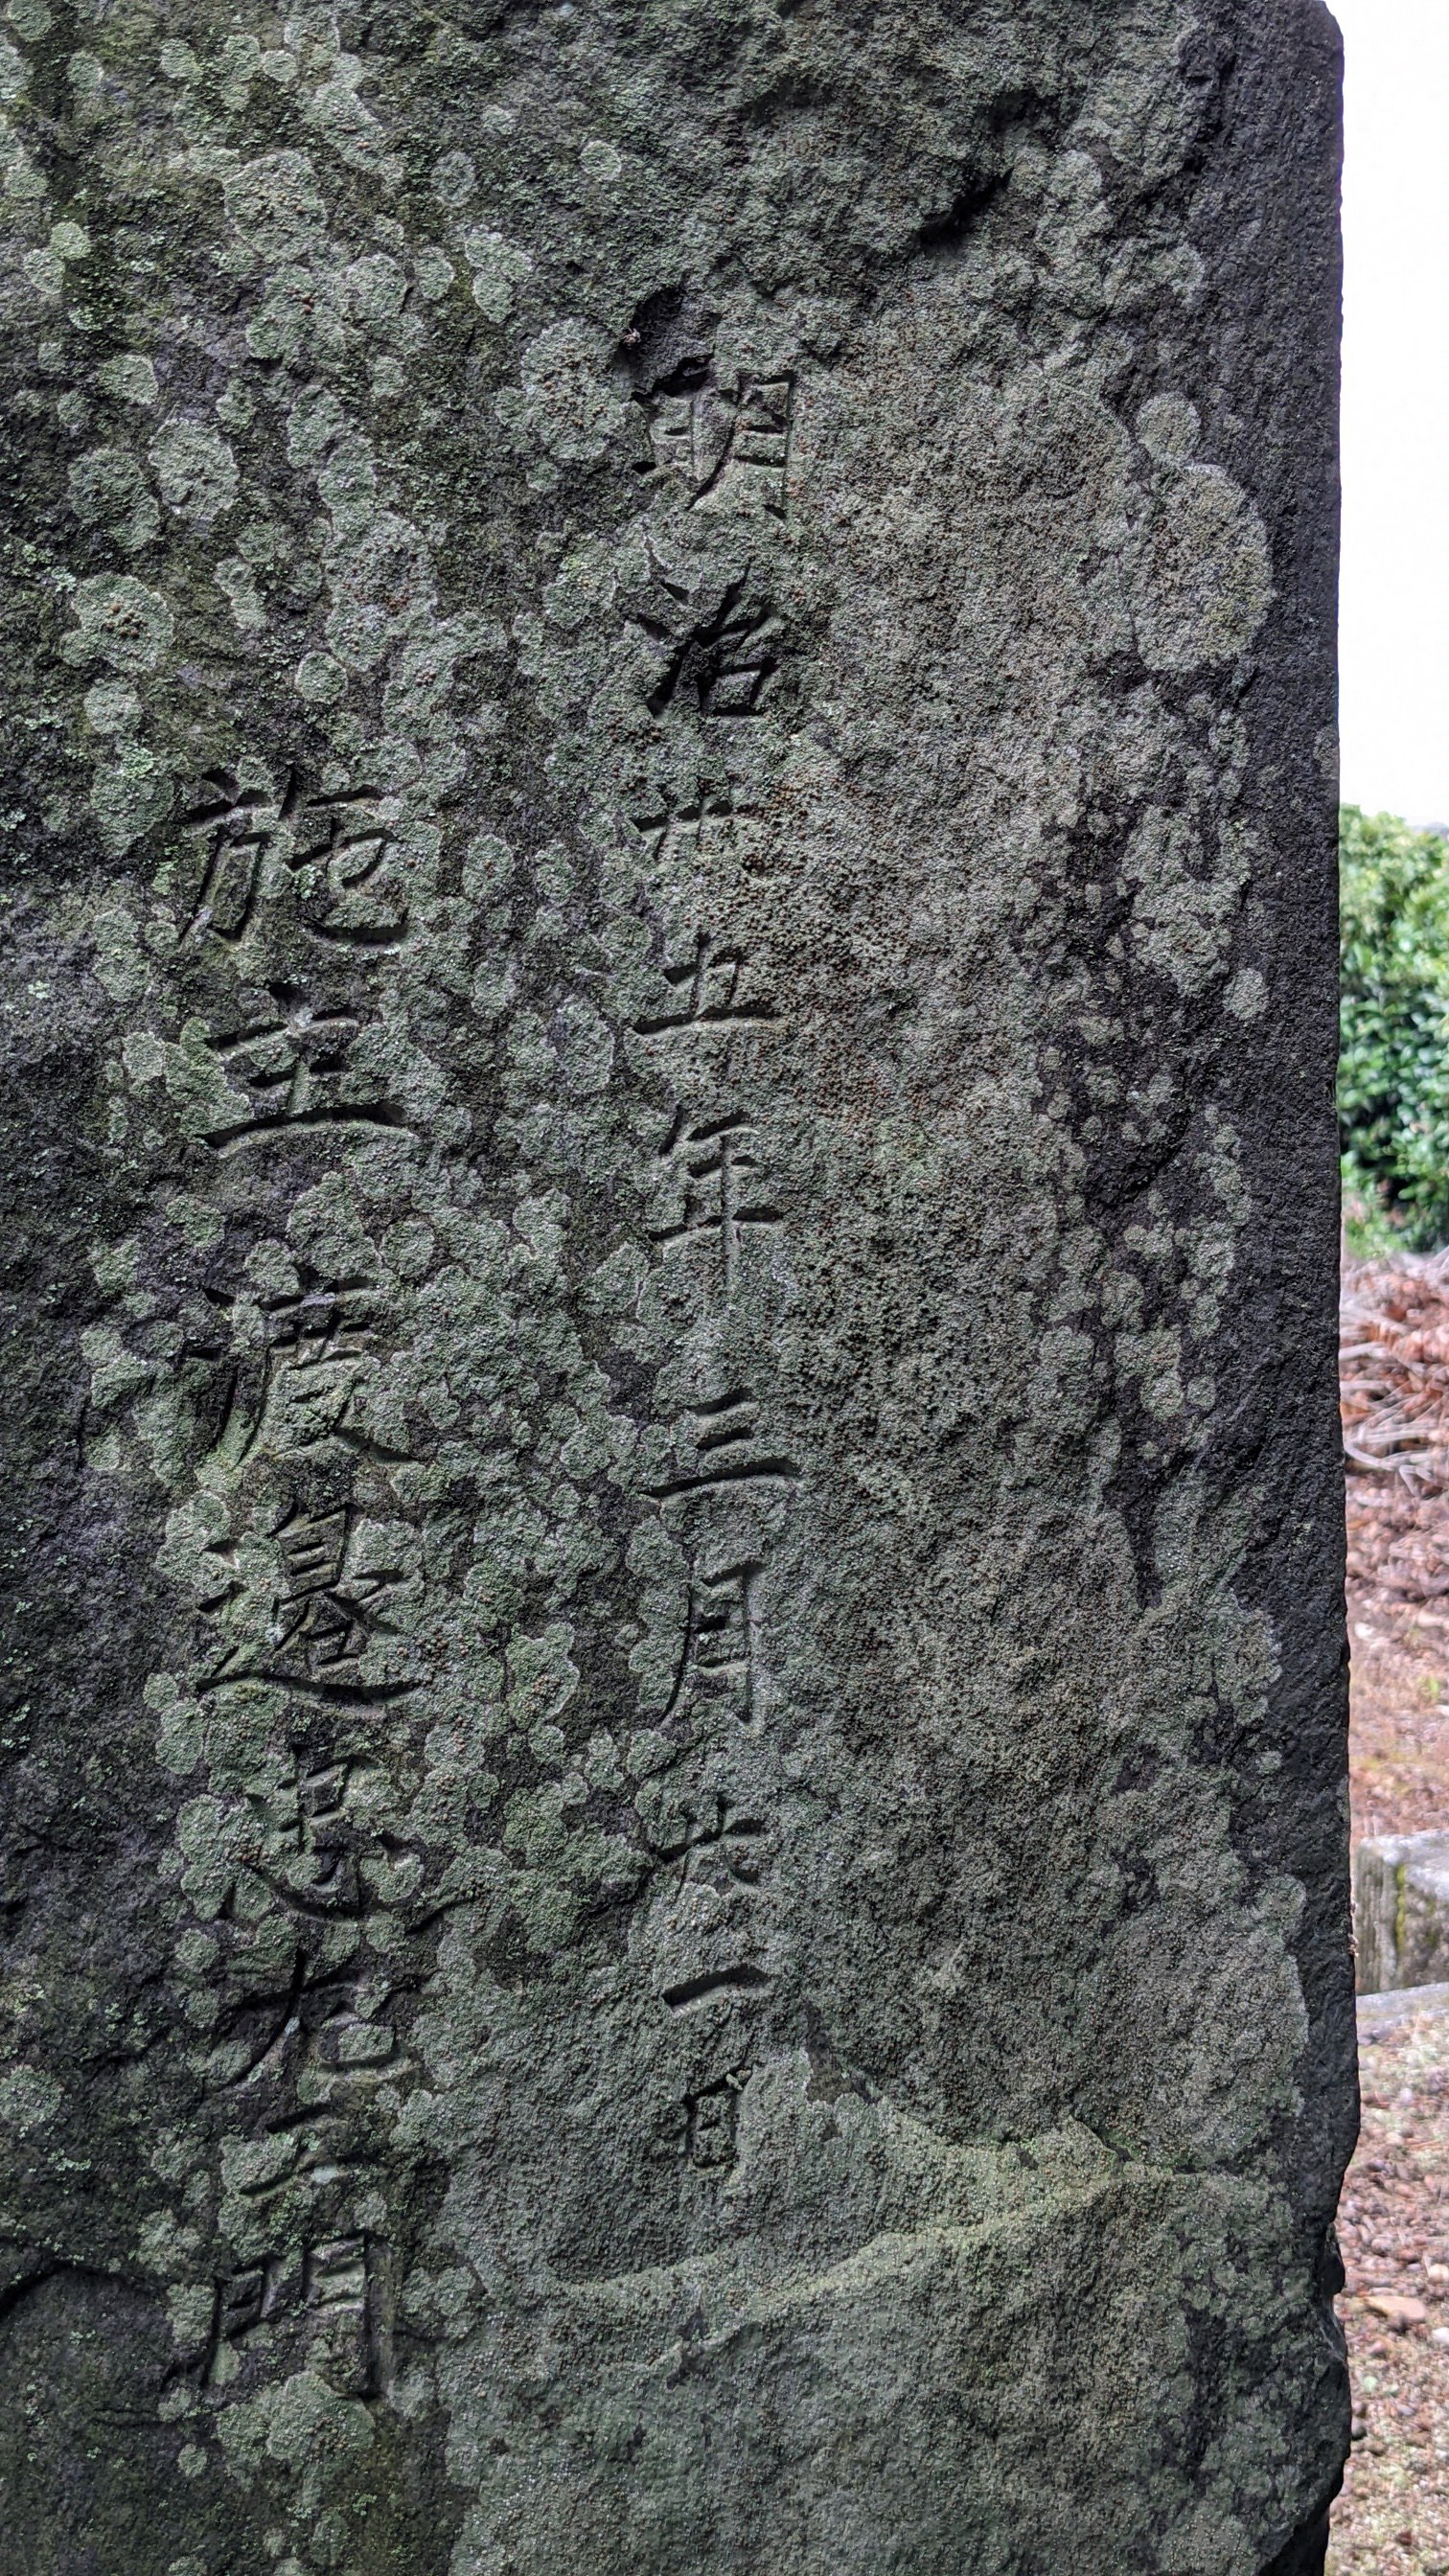 明治十五年三月廿一日
施主渡邊忠左エ門